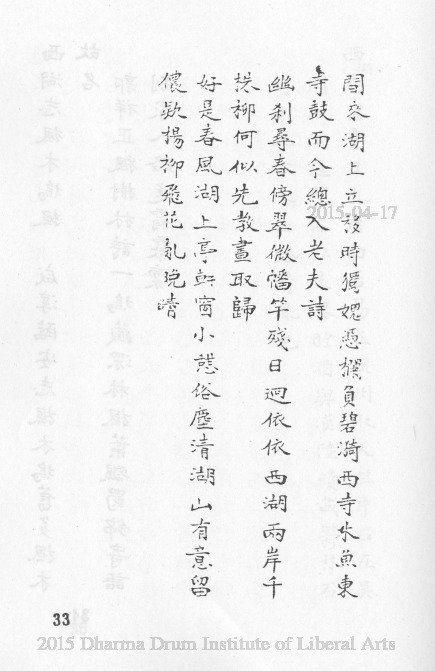 間來湖上立移時獨媿憑欄負碧漪西寺木魚東
寺鼓而今總入老夫詩
幽刹尋春傍翠微幡竿殘日迥依依西湖兩岸千
株柳何似先教畫取歸
好是春風湖上亭軒窗小憩俗塵清湖山有意留
儂歇楊柳飛花亂晚晴
2015-04-17
33
2015 Dharma Drum Institute of Liberal Arts